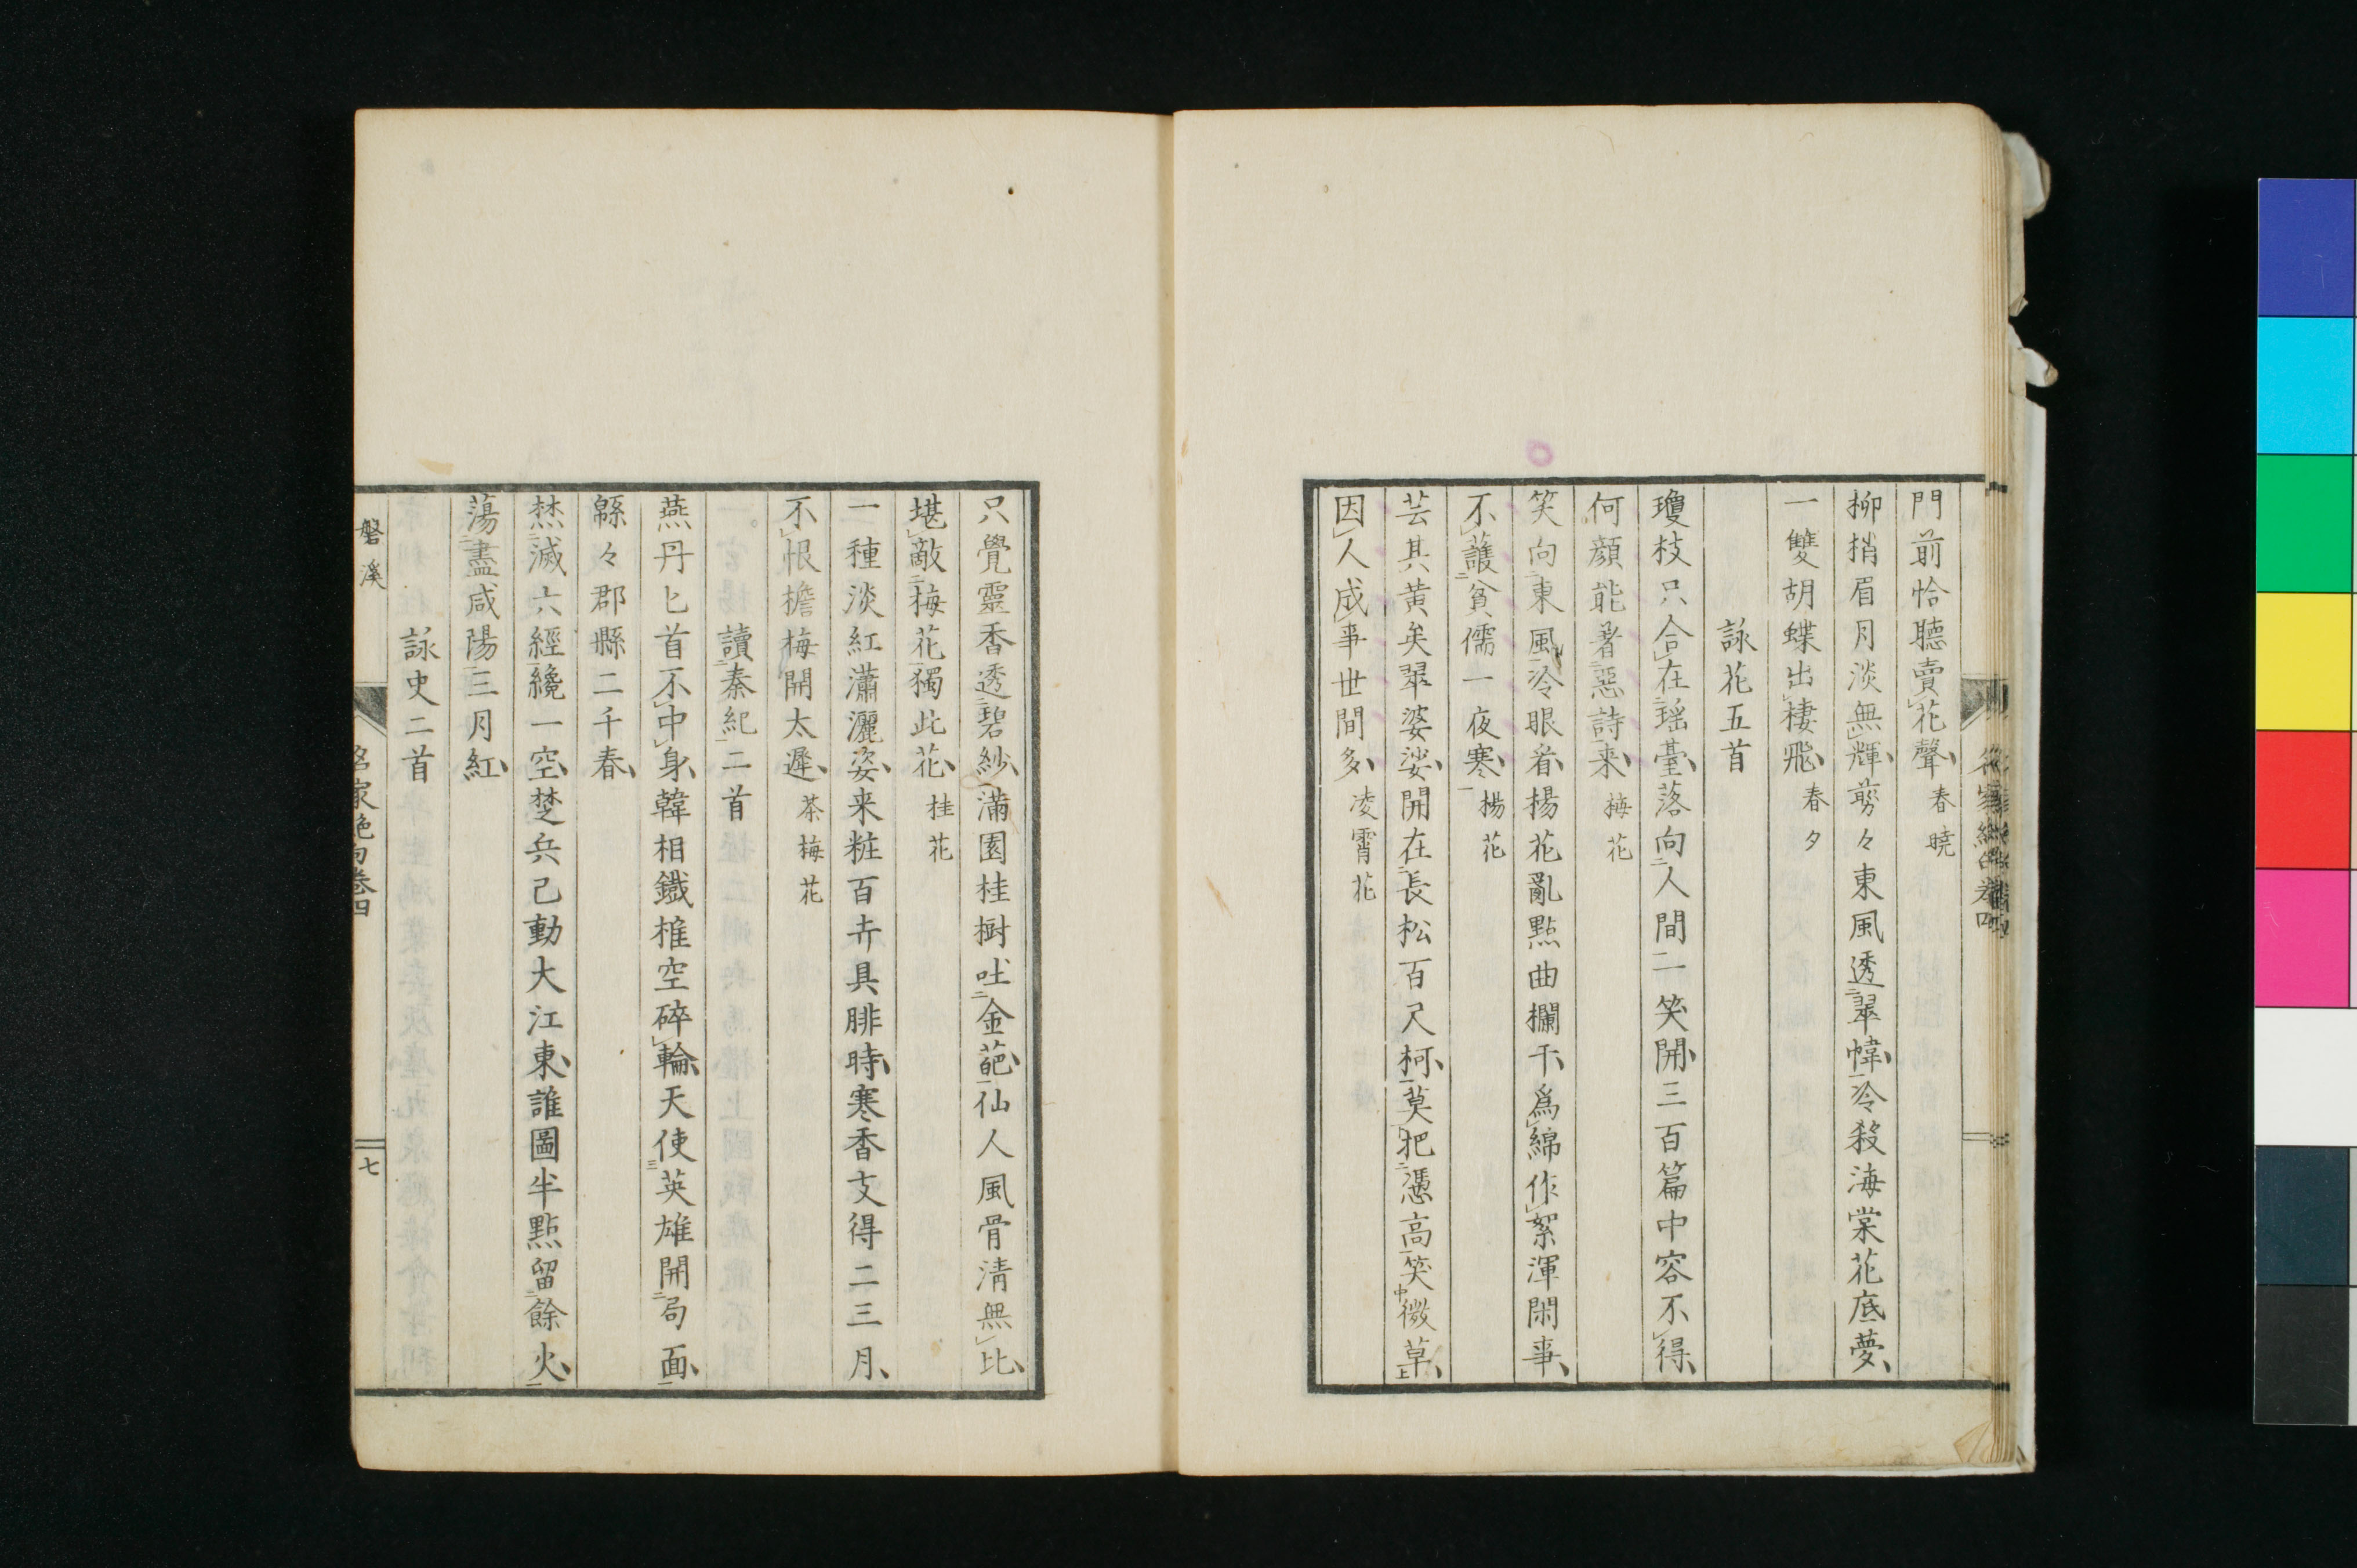 門前恰聽賣花聲春曉
柳梢眉月淡無輝剪々東風透翠幃冷殺海棠花底夢
一雙胡蝶出棲飛春夕
詠花五首
瓊枝只合在瑶臺落向人間一笑開三百篇中容不得
何顔能著惡詩来梅花
笑向東風冷眼看楊花亂點曲欄干爲綿作絮渾閑事
不護貧儒一夜寒楊花
芸其黄矣翠婆娑開在長松百尺柯莫把憑高笑微草
因人成事世間多凌霄花
只覺靈香透碧紗滿園桂樹吐金葩仙人風骨清無比
堪敵梅花獨此花桂花
一種淡紅瀟灑姿来粧百卉具腓時寒香支得二三月
不恨檐梅開太遲茶梅花
讀秦紀二首
燕丹匕首不中身韓相鐵椎空碎輪天使英雄開局面
緜々郡縣二千春
焚滅六經纔一空楚兵已動大江東誰圖半點留餘火
蕩盡咸陽三月紅
詠史二首
磐溪
名家絶句卷四
七